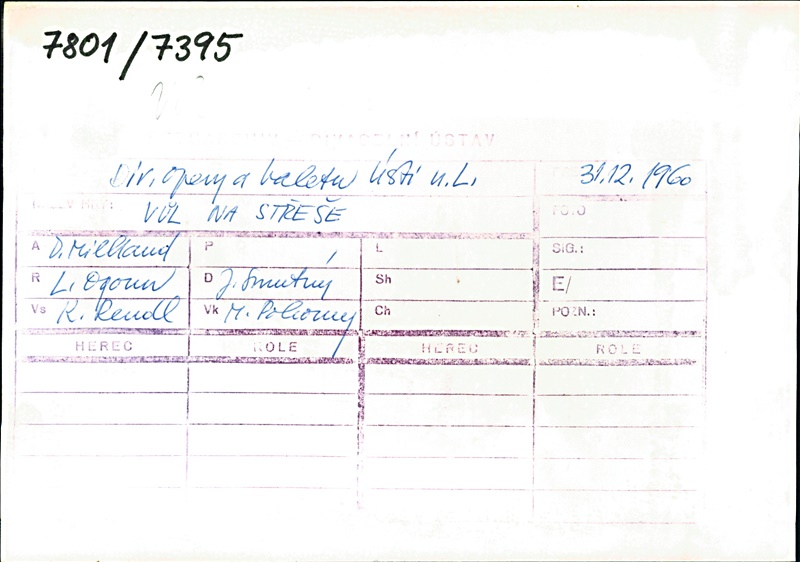 7801/7395
ÚSTAV
Div. opery a baletu Ústí n.L. 31.12.1960
VŮL NA STŘEŠE FOTO
A D. Milhaud P L SIG.:
R L. Ogoun D J. Smutný Sh E/
Vs K. Rendl Vk M. Pokorný Ch POZN.:
HEREC ROLE HEREC ROLE